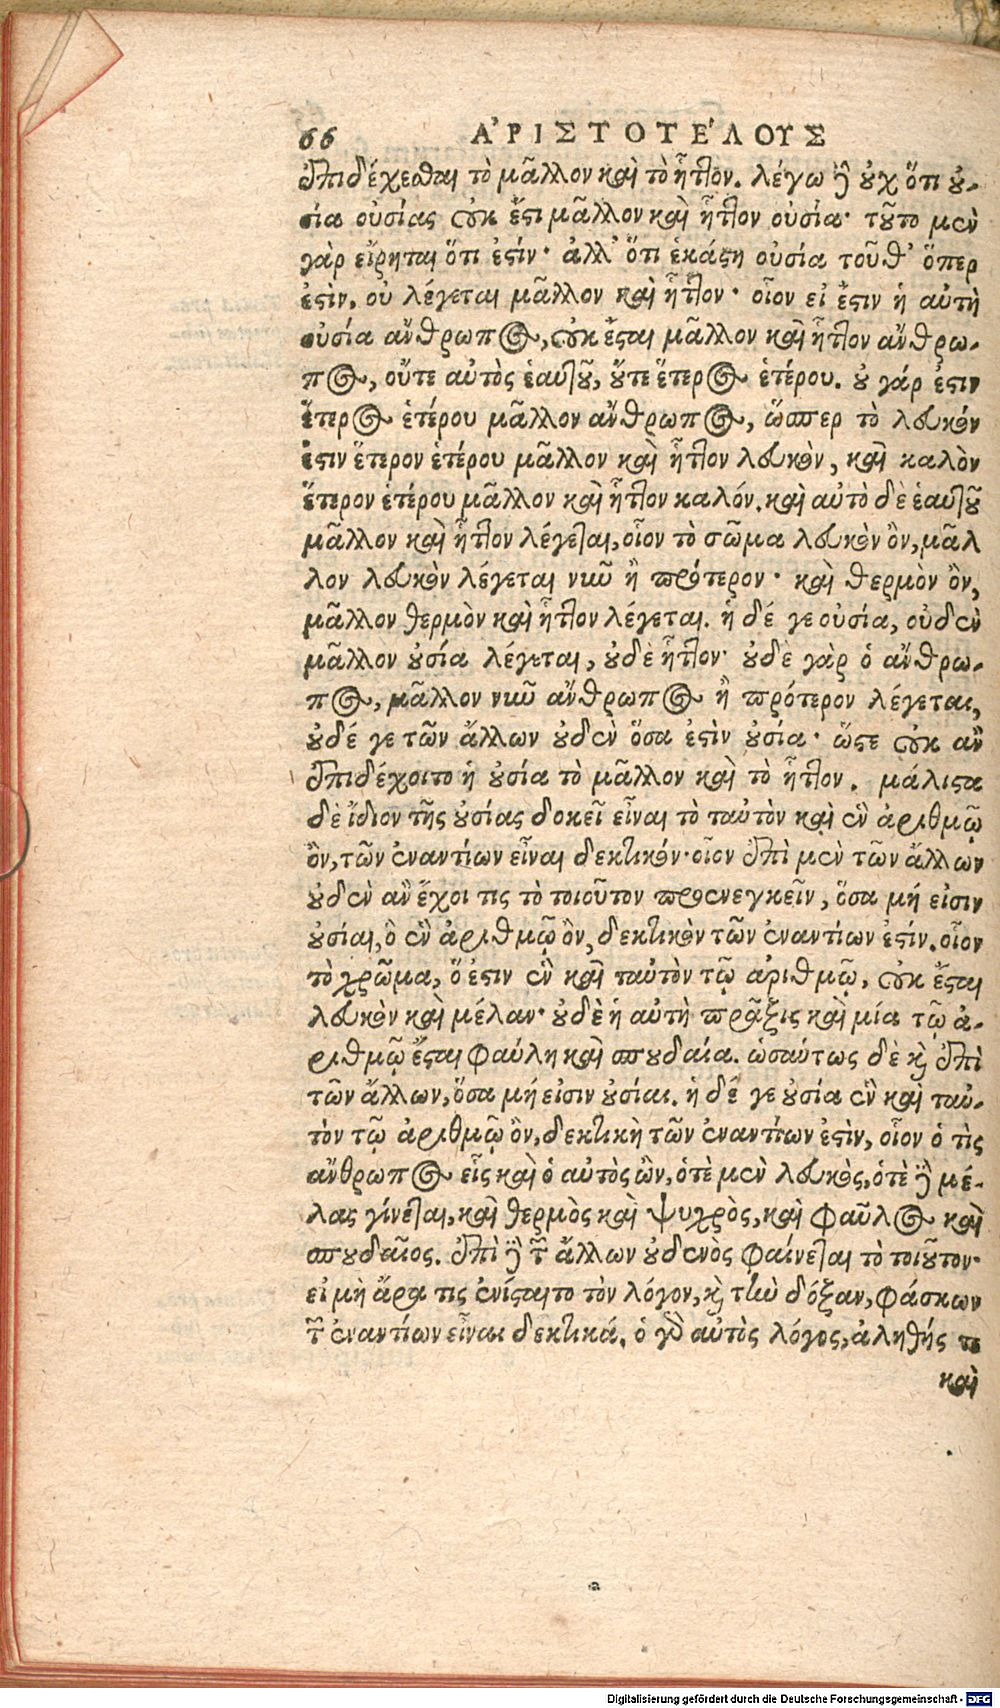 66 ἈΡΙΣΤΟΤΈΛΟΥΣ
ἐπιδέχεσθαι τὸ μᾶλλον καὶ τὸ ἧττον. λέγω δὲ οὐχ ὅτι οὐ-
σία οὐσίας οὐκ ἔστι μᾶλλον καὶ ἧττον οὐσία· τοῦτο μὲν
γὰρ εἴρηται ὅτι ἐστίν· ἀλλ' ὅτι ἑκάστη οὐσία τοῦθ' ὅπερ
ἐστὶν, οὐ λέγεται μᾶλλον καὶ ἧττον· οἷον εἰ ἔστιν ἡ αὐτὴ
οὐσία ἄνθρωπος, οὐκ ἔσται μᾶλλον καὶ ἧττον ἄνθρω-
πος, οὔτε αὐτὸς ἑαυτοῦ, οὔτε ἕτερος ἑτέρου. οὐ γάρ ἐστιν
ἕτερος ἑτέρου μᾶλλον ἄνθρωπος, ὥσπερ τὸ λευκόν
ἐστιν ἕτερον ἑτέρου μᾶλλον καὶ ἧττον λευκὸν, καὶ καλὸν
ἕτερον ἑτέρου μᾶλλον καὶ ἧττον καλόν. καὶ αὐτὸ δὲ ἑαυτοῦ
μᾶλλον καὶ ἧττον λέγεται, οἷον τὸ σῶμα λευκὸν ὂν, μᾶλ
λον λευκὸν λέγεται νῦν ἢ πρότερον· καὶ θερμὸν ὂν,
μᾶλλον θερμὸν καὶ ἧττον λέγεται. ἡ δέ γε οὐσία, οὐδὲν
μᾶλλον οὐσία λέγεται, οὐδὲ ἧττον· οὐδὲ γὰρ ὁ ἄνθρω-
πος, μᾶλλον νῦν ἄνθρωπος ἢ πρότερον λέγεται,
οὐδέ γε τῶν ἄλλων οὐδὲν ὅσα ἐστὶν οὐσία· ὥστε οὐκ ἂν
ἐπιδέχοιτο ἡ οὐσία τὸ μᾶλλον καὶ τὸ ἧττον. μάλιστα
δὲ ἴδιον τῆς οὐσίας δοκεῖ εἶναι τὸ ταὐτὸν καὶ ἓν ἀριθμῷ
ὂν, τῶν ἐναντίων εἶναι δεκτικόν· οἷον ἐπὶ μὲν τῶν ἄλλων
οὐδὲν ἂν ἔχοι τις τὸ τοιοῦτον προενεγκεῖν, ὅσα μή εἰσιν
οὐσίαι, ὃ ἓν ἀριθμῷ ὂν, δεκτικὸν τῶν ἐναντίων ἐστίν. οἷον
τὸ χρῶμα, ὅ ἐστιν ἓν καὶ ταὐτὸν τῷ ἀριθμῷ, οὐκ ἔσται
λευκὸν καὶ μέλαν· οὐδὲ ἡ αὐτὴ πρᾶξις καὶ μία τῷ ἀ-
ριθμῷ ἔσται φαύλη καὶ σπουδαία. ὡσαύτως δὲ καὶ ἐπὶ
τῶν ἄλλων, ὅσα μή εἰσιν οὐσίαι. ἡ δέ γε οὐσία ἓν καὶ ταὐ-
τὸν τῷ ἀριθμῷ ὂν, δεκτικὴ τῶν ἐναντίων ἐστὶν, οἷον ὁ τὶς
ἄνθρωπος εἷς καὶ ὁ αὐτὸς ὢν, ὁτὲ μὲν λευκὸς, ὁτὲ δὲ μέ-
λας γίνεται, καὶ θερμὸς καὶ ψυχρὸς, καὶ φαῦλος καὶ
σπουδαῖος. ἐπὶ δὲ τῶν ἄλλων οὐδενὸς φαίνεται τὸ τοιοῦτον·
εἰ μὴ ἄρα τις ἐνίσταιτο τὸν λόγον, καὶ τὴν δόξαν, φάσκων
τῶν ἐναντίων εἶναι δεκτικά. ὁ γὰρ αὐτὸς λόγος, ἀληθής τε
καὶ
Digitalisierung gefördert durch die Deutsche Forschungsgemeinschaft - DFG